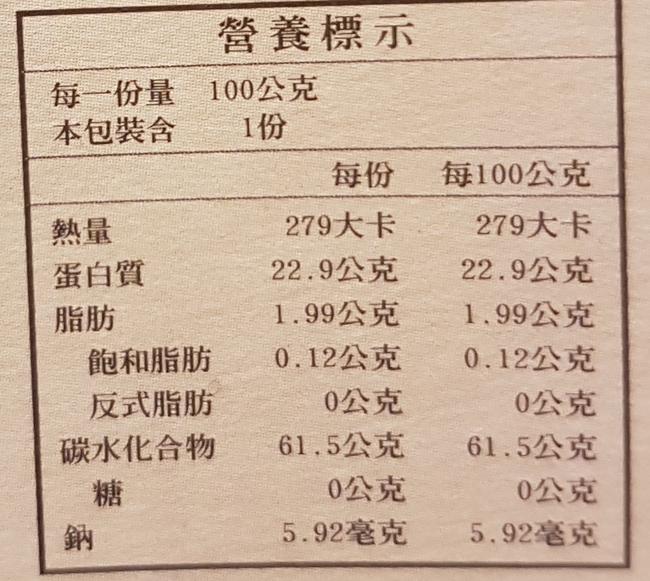 營養標示
每一份量 100公克
本包裝含 1份
每份 每100公克
熱量 279大卡 279大卡
蛋白質 22.9公克 22.9公克
脂肪 1.99公克 1.99公克
飽和脂肪 0.12公克 0.12公克
反式脂肪 0公克 0公克
碳水化合物 61.5公克 61.5公克
糖 0公克 0公克
鈉 5.92毫克 5.92毫克